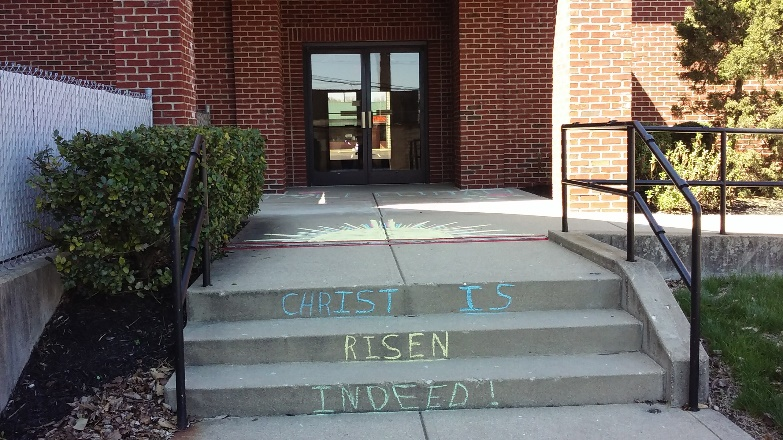 CHRIST IS
RISEN
INDEED!